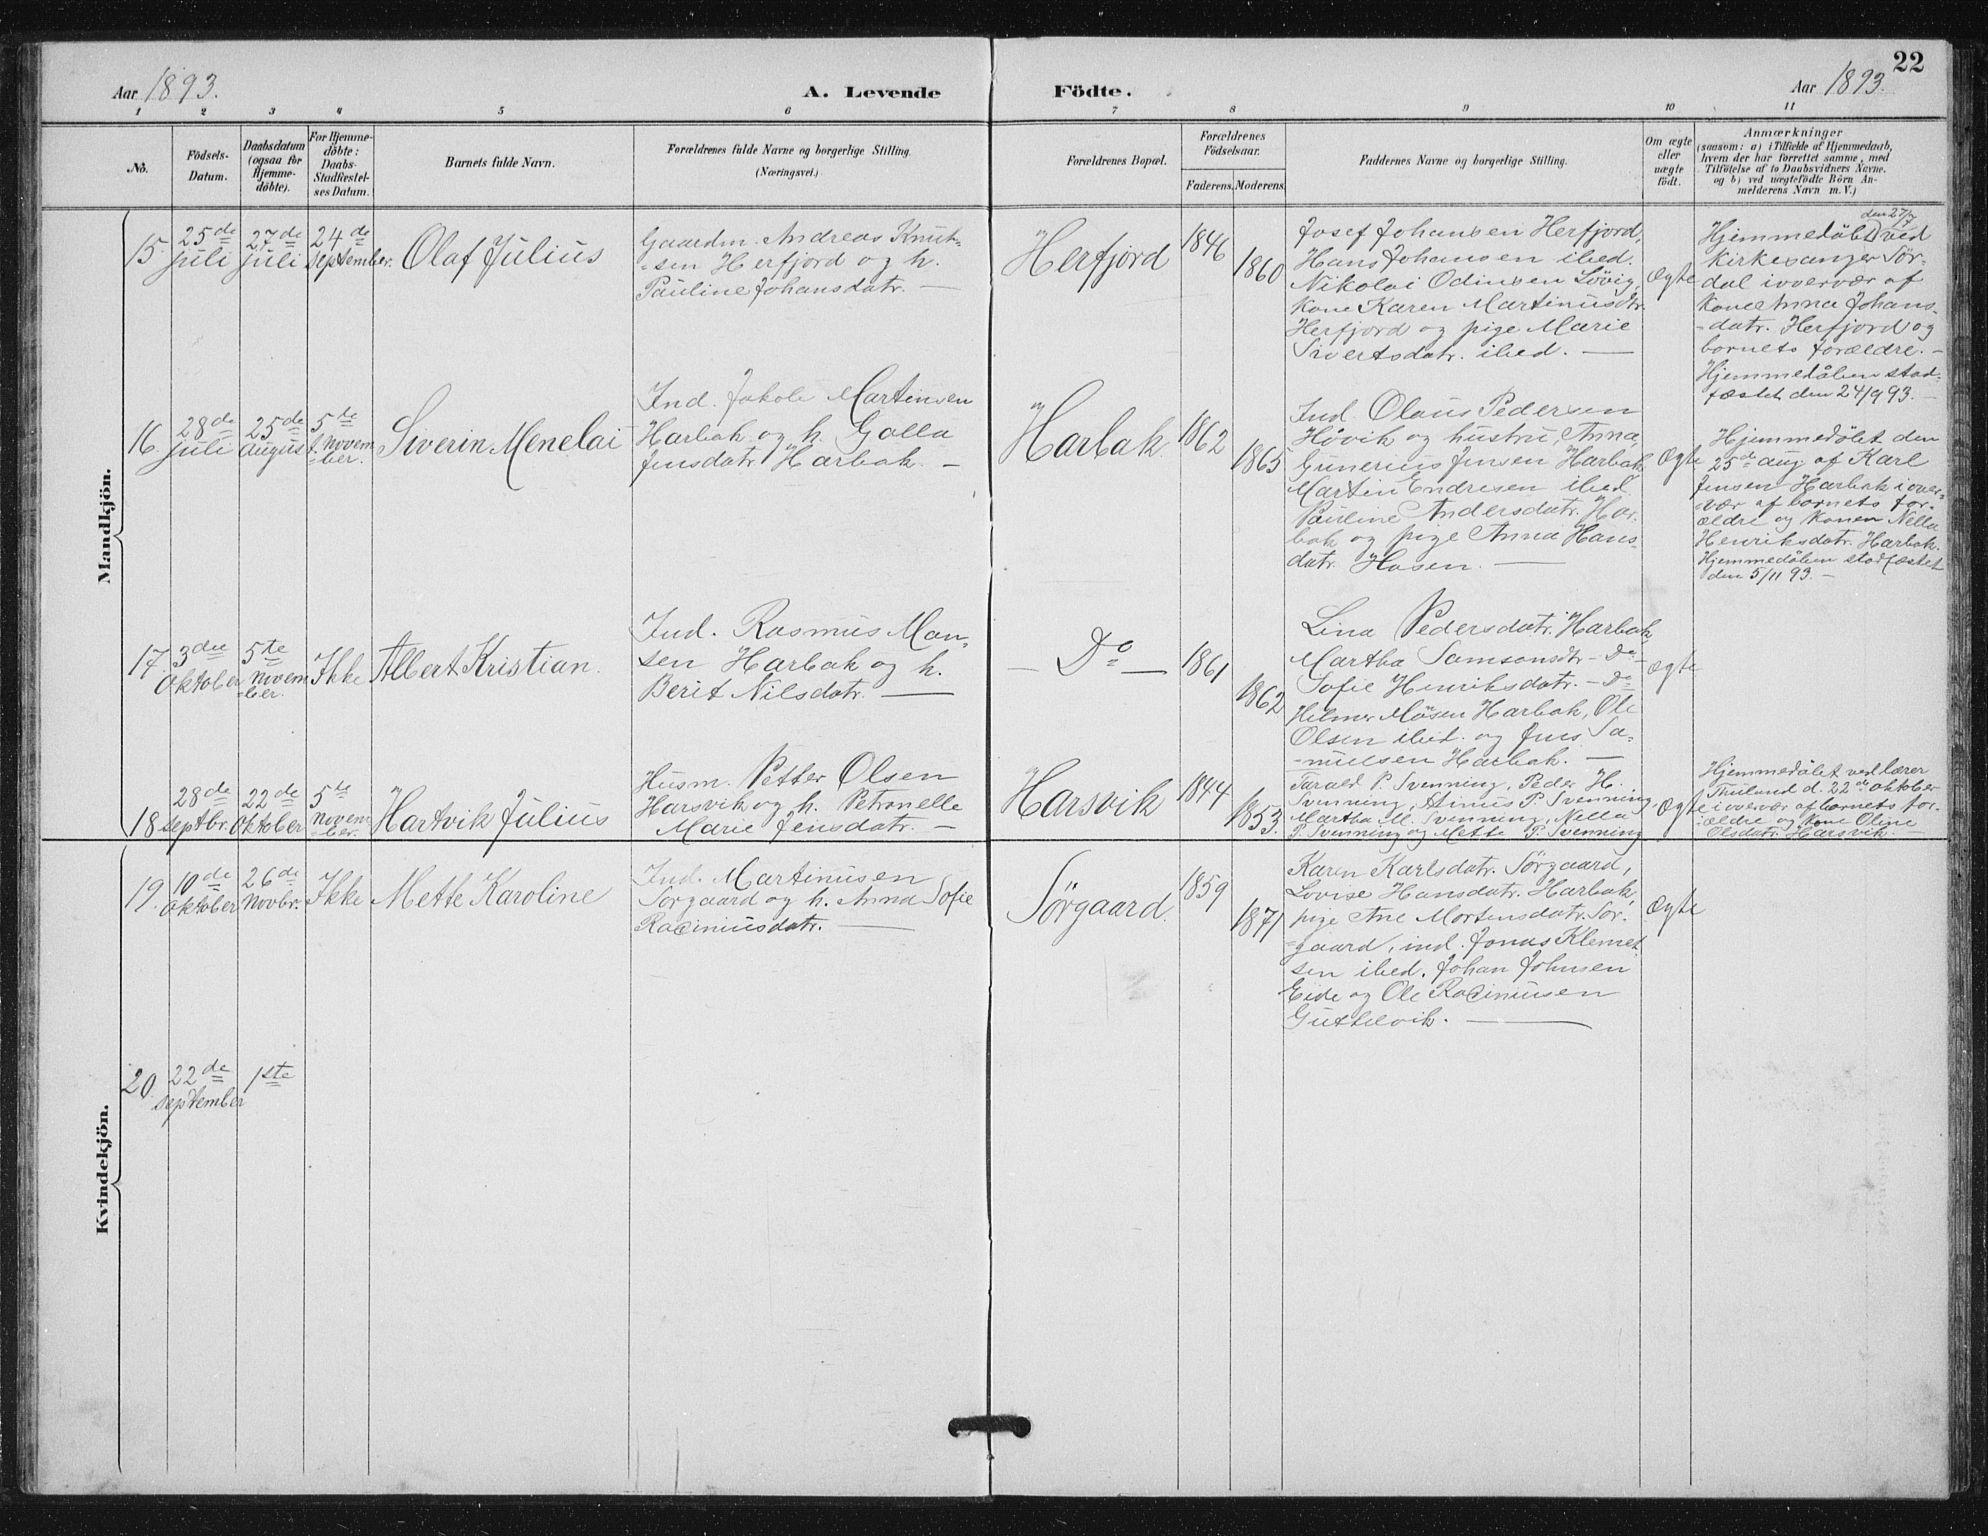 22
Aar 1893. A. Levende Födte. Aar 1893.
1 2 3 4 5 6 7 8 9 10 11
No.
Födsels-
Datum.
Daabsdatum
(ogsaa for
Hjemme-
döbte).
For Hjemme-
döbte:
Daabs-
Stadfæstel-
ses Datum.
Barnets fulde Navn.
Forældrenes fulde Navne og borgerlige Stilling.
(Næringsvei.)
Forældrenes Bopæl.
Forældrenes
Födselsaar.
Faderens. Moderens.
Faddernes Navne og borgerlige Stilling.
Om ægte
eller
uægte
födt.
Anmærkninger
(saasom: a) i Tilfælde af Hjemmedaab,
hvem der har forrettet samme, med
Tilföielse af to Daabsvidners Navne.
og b) ved uægtefödte Börn An-
melderens Navn m. V.)
Mandkjön.
15.
25de
juli
27de
juli
24de
september.
Olaf Julius
Gaardm. Andreas Knut-
sen Herfjord og h.
Pauline Johansdatr. —
Herfjord
1846
1860
Josef Johansen Herfjord,
Hans Johansen ibed.
Nikolai Odinsen Lövig,
Kone Karen Martinusdtr.
Herfjord og pige Marie
Sivertsdatr. ibed. —
Ægte
den 27/7
Hjemmedöbt ved
Kirkesanger Sör-
dal iovervær af
Kone Anna Johans-
datr. Herfjord og
barnets forældre. —
Hjemmedåben stad-
fæstet den 24/9 93. —
16.
28de
juli
25de
august
5te
novem
ber.
Siverin Menelai
Ind. Jakob Martinsen
Harbak og h. Golla
Jensdatr. Harbak. —
Harbak.
1862
1865
Ind. Olaus Pedersen
Hövik og hustru Anna,
Gunerius Jensen Harbak
Martin Endresen ibed.
Pauline Andersdatr. Har-
bak og pige Anna Hans-
datr. Hosen. —
Ægte
Hjemmedöbt den
25de aug. af Karl
Jensen Harbak iover-
vær af barnets for-
ældre og Konen Nella
Henriksdatr. Harbak.
Hjemmedåben stadfæstet
den 5/11 93. —
17.
3die
Oktober
5te
novem
ber.
Ikke
Albert Kristian.
Ind. Rasmus Mon-
sen Harbak og h.
Berit Nilsdatr. —
— Do —
1861
1862
Lina Pedersdatr. Harbak,
Martha Samsonsdtr — Do —
Sofie Henriksdatr. — Do
Helmer Mösen Harbak, Ole
Olsen ibed. og Jens Sa-
muelsen Harbak. —
Ægte
18
28de
septbr.
22de
Oktober
5te
novem
ber.
Hartvik Julius
Husm. Petter Olsen
Harsvik og h. Petronelle
Marie Jensdatr. —
Harsvik
1844
1853.
P. Svenning, Peder H.
Svenning, P. Svenning
Martha M. Svenning, Nella
P. Svenning og Mette P. Svenning
Ægte
Hjemmedöbt ved lærer
Thulund d. 22de Oktober
iovervær af barnets for-
ældre og Kone Oline
Olsdatr. Harsvik. —
Kvindekjön.
19.
10de
Oktober
26de
Novbr.
Ikke
Mette Karoline
Ind. Martinusen
Sörgaard og h. Anna Sofie
Rasmiusdatr. —
Sörgaard.
1859
1871
Karen Karlsdatr. Sörgaard,
Lovise Hansdatr. Harbak,
pige Ane Mortensdatr. Sör-
gaard, ind. Jonas Klemet
sen ibed. Johan Johnsen
Eide og Ole
Guttelvik. —
Ægte
20.
22de
september
1ste